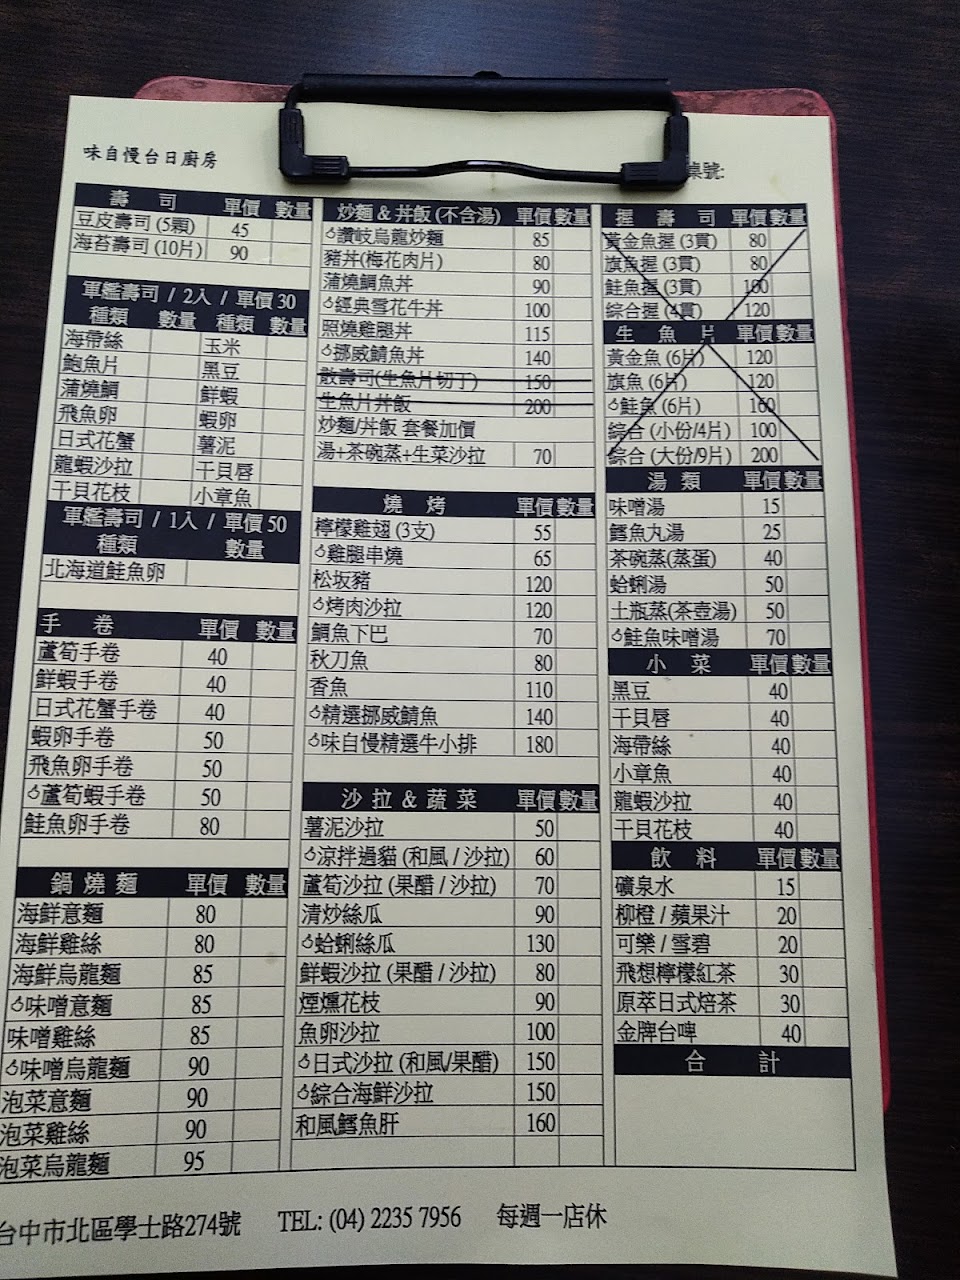 味自慢台日廚房
桌號:
壽 司 單價 數量
豆皮壽司 (5顆) 45
海苔壽司 (10片) 90
軍艦壽司 / 2入 / 單價 30
種類 數量 種類 數量
海帶絲 玉米
鮑魚片 黑豆
蒲燒鯛 鮮蝦
飛魚卵 蝦卵
日式花蟹 薯泥
龍蝦沙拉 干貝唇
干貝花枝 小章魚
軍艦壽司 / 1入 / 單價 50
種類 數量
北海道鮭魚卵
手 卷 單價 數量
蘆筍手卷 40
鮮蝦手卷 40
日式花蟹手卷 40
蝦卵手卷 50
飛魚卵手卷 50
蘆筍蝦手卷 50
鮭魚卵手卷 80
鍋 燒 麵 單價 數量
海鮮意麵 80
海鮮雞絲 80
海鮮烏龍麵 85
味噌意麵 85
味噌雞絲 85
味噌烏龍麵 90
泡菜意麵 90
泡菜雞絲 90
泡菜烏龍麵 95
炒麵 & 丼飯 (不含湯) 單價 數量
讚岐烏龍炒麵 85
豬丼(梅花肉片) 80
蒲燒鯛魚丼 90
經典雪花牛丼 100
照燒雞腿丼 115
挪威鯖魚丼 140
散壽司(生魚片切丁) 150
生魚片丼飯 200
炒麵/丼飯 套餐加價
湯+茶碗蒸+生菜沙拉 70
燒 烤 單價 數量
檸檬雞翅 (3支) 55
雞腿串燒 65
松坂豬 120
烤肉沙拉 120
鯛魚下巴 70
秋刀魚 80
香魚 110
精選挪威鯖魚 140
味自慢精選牛小排 180
沙 拉 & 蔬 菜 單價 數量
薯泥沙拉 50
涼拌過貓 (和風 / 沙拉) 60
蘆筍沙拉 (果醋 / 沙拉) 70
清炒絲瓜 90
蛤蜊絲瓜 130
鮮蝦沙拉 (果醋 / 沙拉) 80
煙燻花枝 90
魚卵沙拉 100
日式沙拉 (和風/果醋) 150
綜合海鮮沙拉 150
和風鱈魚肝 160
握 壽 司 單價 數量
黃金魚握 (3貫) 80
旗魚握 (3貫) 80
鮭魚握 (3貫) 100
綜合握 (4貫) 120
生 魚 片 單價 數量
黃金魚 (6片) 120
旗魚 (6片) 120
鮭魚 (6片) 160
綜合 (小份/4片) 100
綜合 (大份/9片) 200
湯 類 單價 數量
味噌湯 15
鱈魚丸湯 25
茶碗蒸(蒸蛋) 40
蛤蜊湯 50
土瓶蒸(茶壺湯) 50
鮭魚味噌湯 70
小 菜 單價 數量
黑豆 40
干貝唇 40
海帶絲 40
小章魚 40
龍蝦沙拉 40
干貝花枝 40
飲 料 單價 數量
礦泉水 15
柳橙 / 蘋果汁 20
可樂 / 雪碧 20
飛想檸檬紅茶 30
原萃日式焙茶 30
金牌台啤 40
合 計
台中市北區學士路274號 TEL: (04) 2235 7956 每週一店休